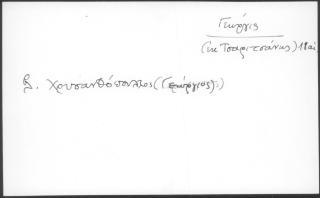 Γεώργις
(ἐκ Τσαριτσάνης) 18 αἰ
β. Χρυσανθόπουλος (Γεώργιος).